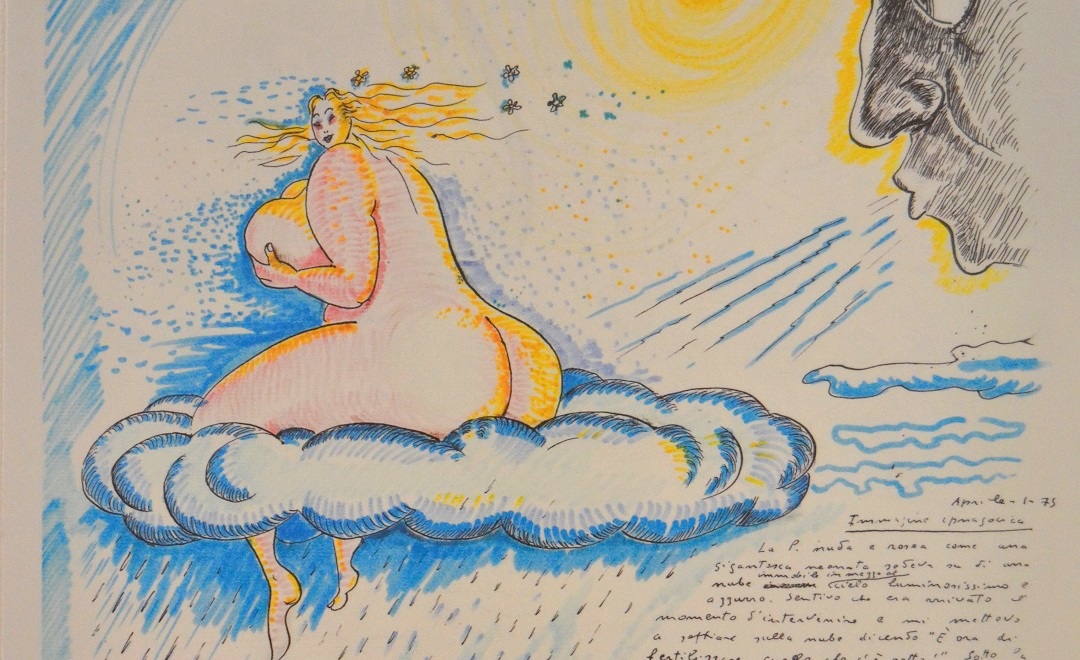 Aprile-1-75
Immagine ipnagogica
La P. nuda e rosea come una
gigantesca neonata sedeva su di una
immobile in mezzo al
nube cielo luminosissimo e
azzurro. Sentivo che era arrivato il
momento d'intervenire e mi mettevo
a soffiare sulla nube dicendo "È ora di
fertilizzare quello che c'è sotto!" Sotto la